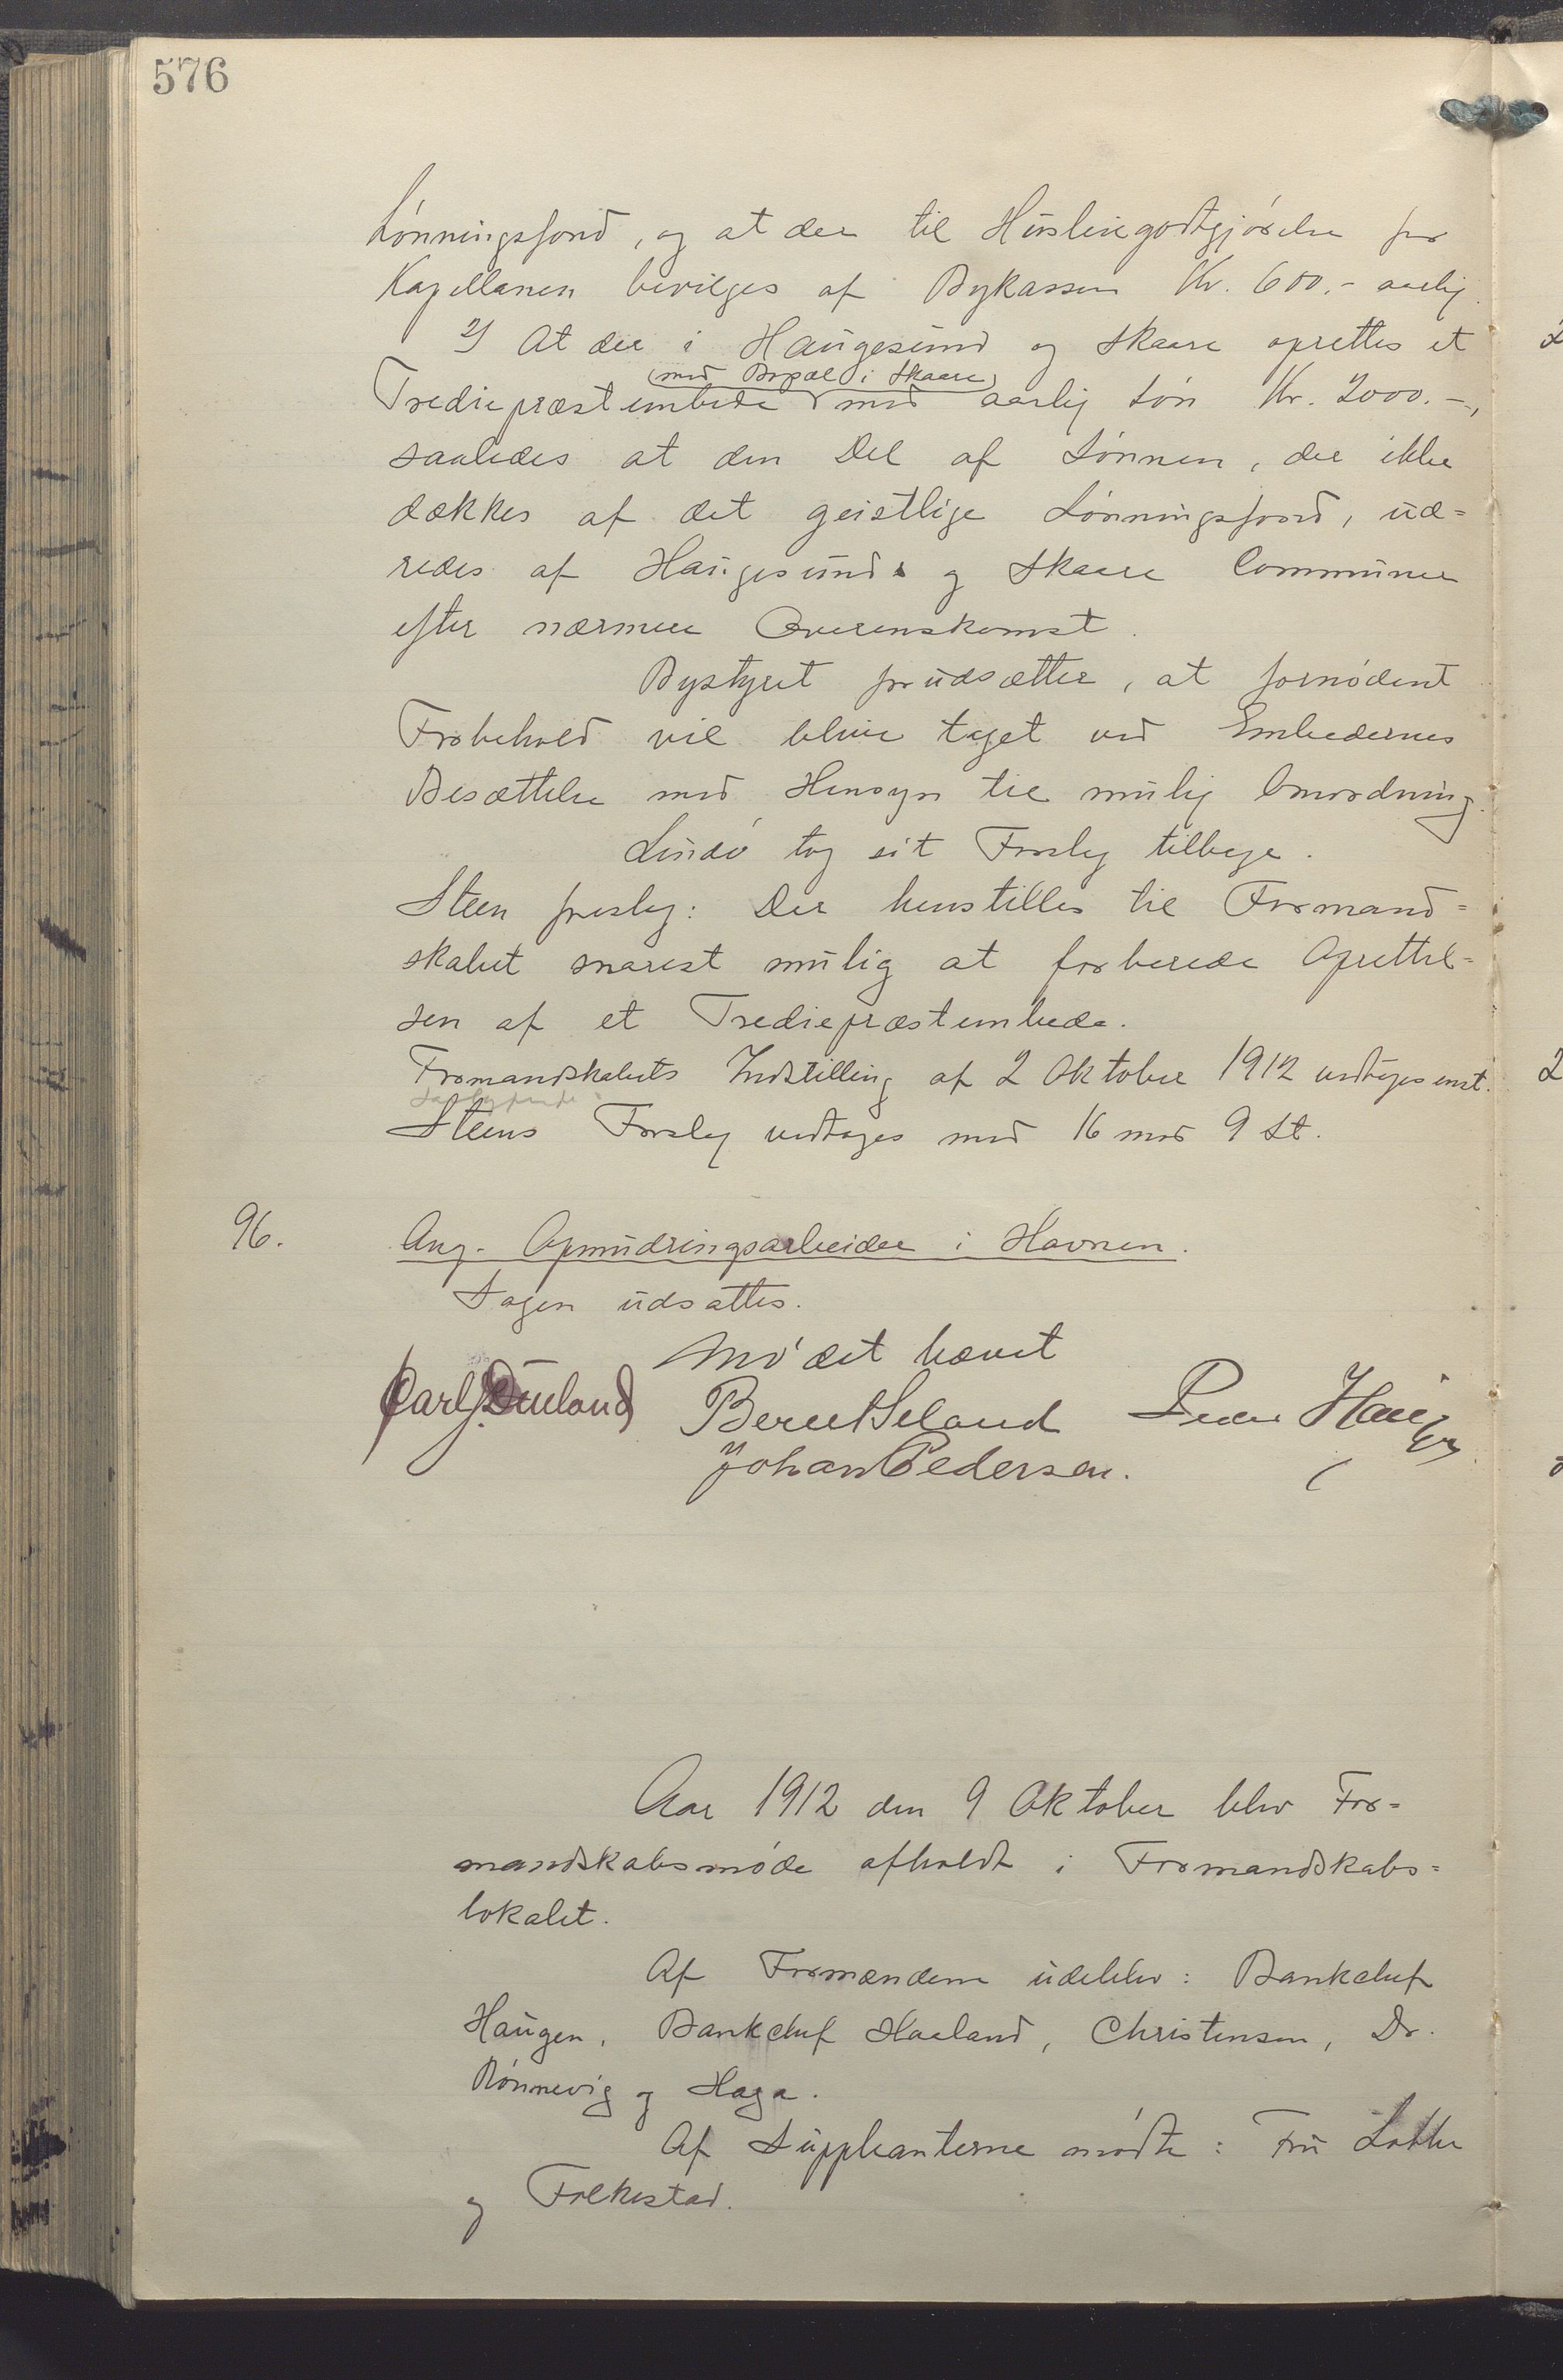 576
Lønningsfond, og at der til Huusleiegodtgjørelse for
Kapellanen bevilges af Bykassen Kr. 600.- aarlig.
2) At der i Haugesund og Skaare oprettes et
(med Bopæl i Skaare)
Trediepræstembede med aarlig Løn Kr. 2000.-,
saaledes at den Del af Lønnen, der ikke
dækkes af det geistlige Lønningsfond, ud=
redes af Haugesunds og Skaare Communer
efter nærmere Overenskomst.
Bystyret forudsætter, at fornødent
Forbehold vil blive taget ved Embedernes
Besættelse med Hensyn til mulig Omordning.
Lindø tog sit Forslag tilbage.
Steen foreslog: Der henstilles til Formand=
skabet snarest mulig at forberede Oprettel=
sen af et Trediepræstembede.
Formandskabets Indstilling af 2 Oktober 1912 vedtoges enst.
Steens Forslag vedtoges med 16 mod 9 St.
96.
Ang. Opmudringsarbeider i Havnen.
Sagen udsattes.
Mødet hævet
Berent Seland Peder Haugen
Johan Pedersen.
Aar 1912 den 9 Oktober blev For=
mandskabsmøde afholdt i Formandskabs=
lokalet.
Af Formændene udeblev: Bankchef
Haugen, Bankchef Haaland, Christensen, Dr.
Rønnevig og Haga.
Af Suppleanterne mødte: Fru Lothe
og Folkestad.